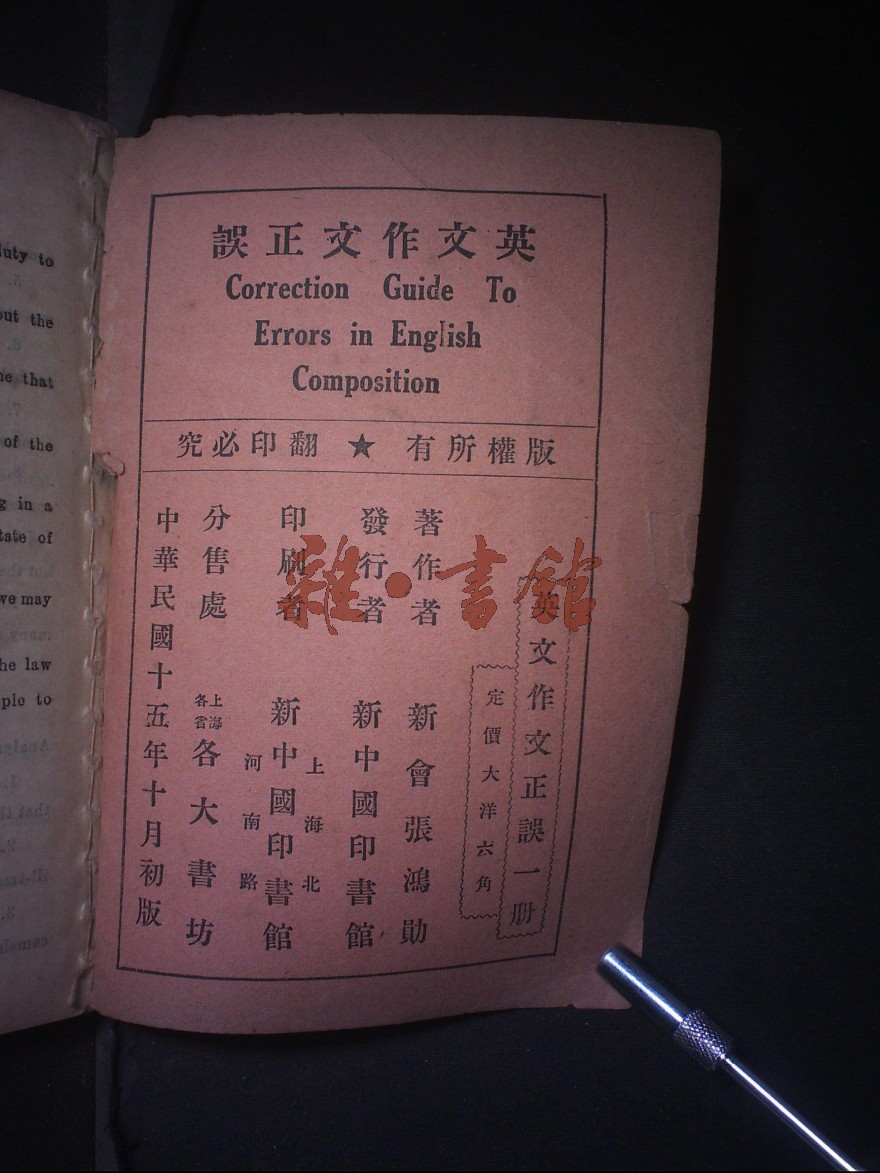 英文作文正誤
Correction Guide To
Errors in English
Composition
版權所有 ★ 翻印必究
英文作文正誤一册
定價大洋六角
著作者 新會張鴻勛
發行者 新中國印書館
印刷者 上海北河南路 新中國印書館
分售處 上海各省 各大書坊
中華民國十五年十月初版
雜·書館
duty to
out the
that
of the
in a
of
we may
the law
to